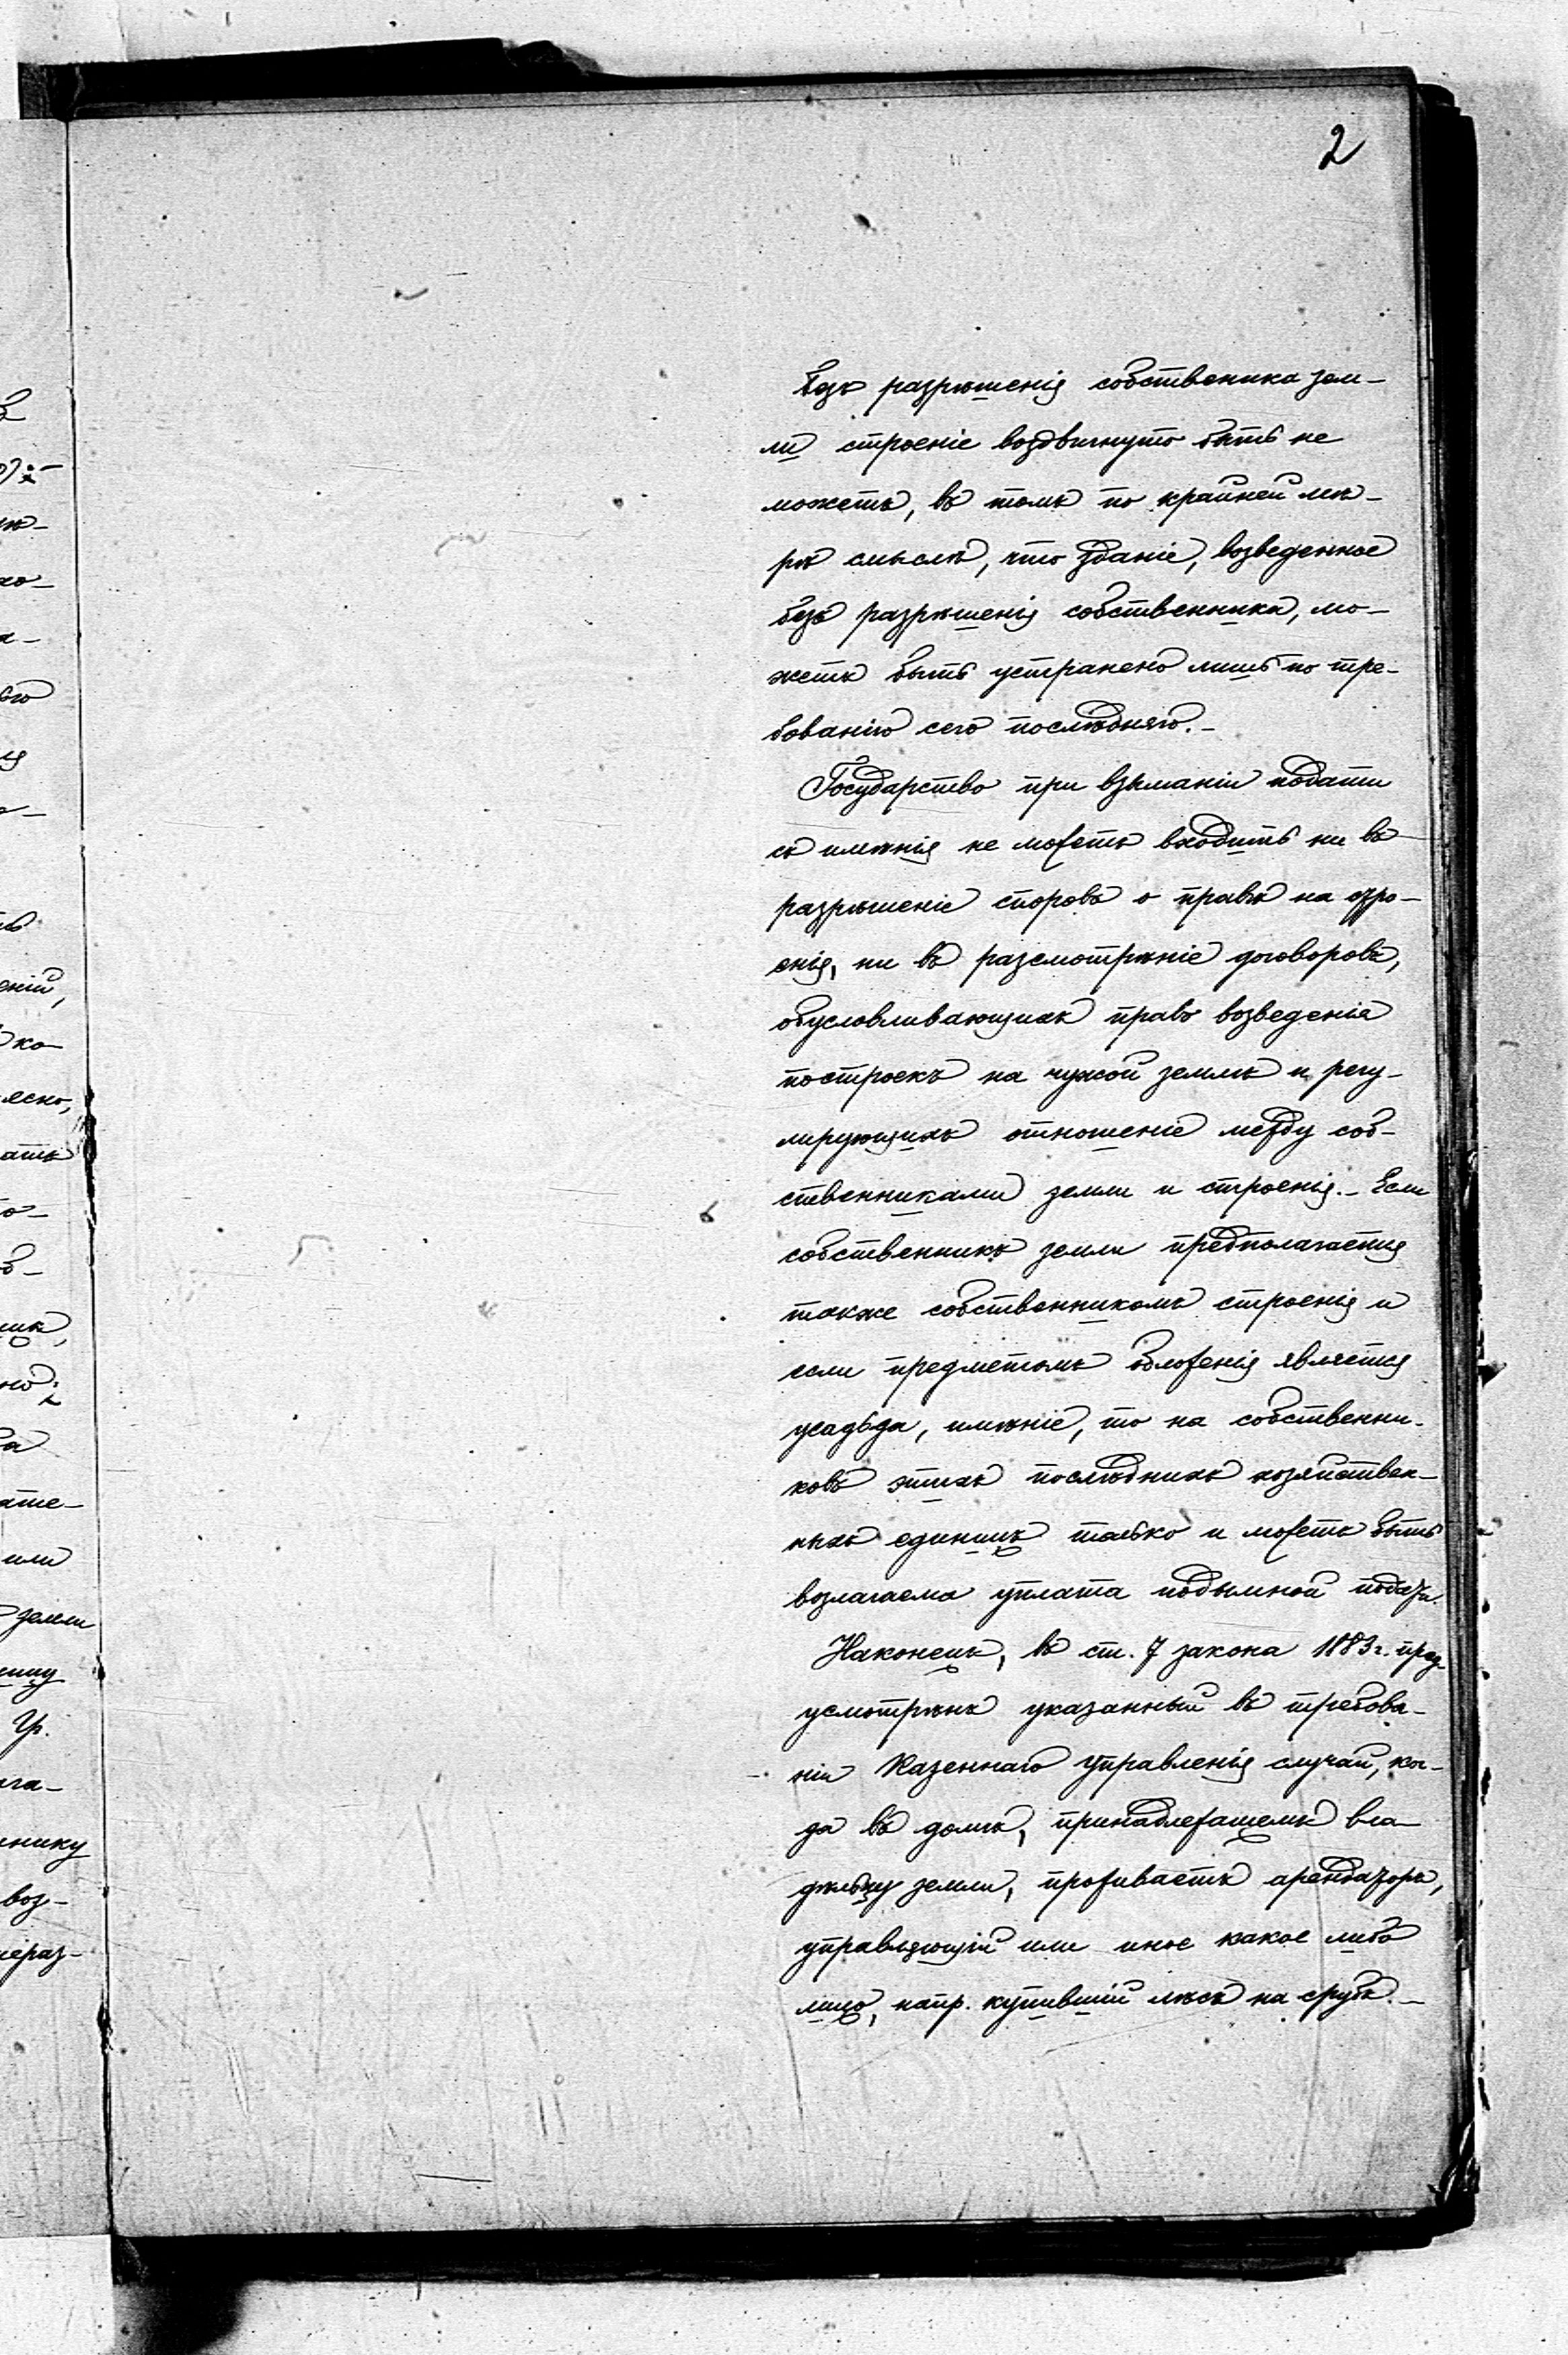 2
безъ разрѣшенія собственика зем-
ли строеніе воздвигнуто быть не
можетъ, въ томъ по крайней мѣ-
рѣ смыслѣ, что зданіе, возведенное
безъ разрѣшенія собственника, мо-
жетъ быть устранено лишь по тре-
бованію сего послѣдняго.-
Государство при взыманіи подати
съ имѣнія не можетъ входить ни въ
разрѣшеніе споровъ о правѣ на стро-
енія, ни въ разсмотрѣніе договоровъ,
обусловливающихъ право возведенія
построекъ на чужой землѣ и регу-
лирующихъ отношеніе между соб-
ственниками земли и строенія.- Если
собственникъ земли предполагается
также собственникомъ строенія и
если предметомъ обложенія является
усадьба, имѣніе, то на собственни-
ковъ этихъ послѣднихъ хозяйствен-
ныхъ единицъ только и можетъ быть
возлагаема уплата подымной подати.
Наконецъ, въ ст. 7 закона 1883 г. пред-
усмотрѣнъ указанный въ требова-
ніи Казеннаго Управленія случай, ког-
да въ домѣ, принадлежащемъ вла-
дѣльцу земли, проживаетъ арендаторъ,
управляющій или иное какое либо
лицо, напр. купившій лѣсъ на срубъ.-